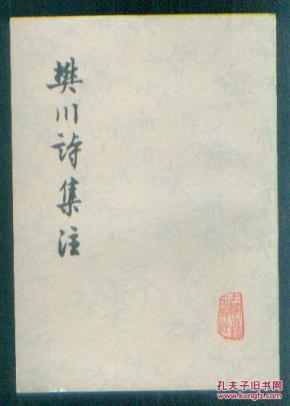 樊川詩集注
孔夫子旧书网
book.kongfz.com